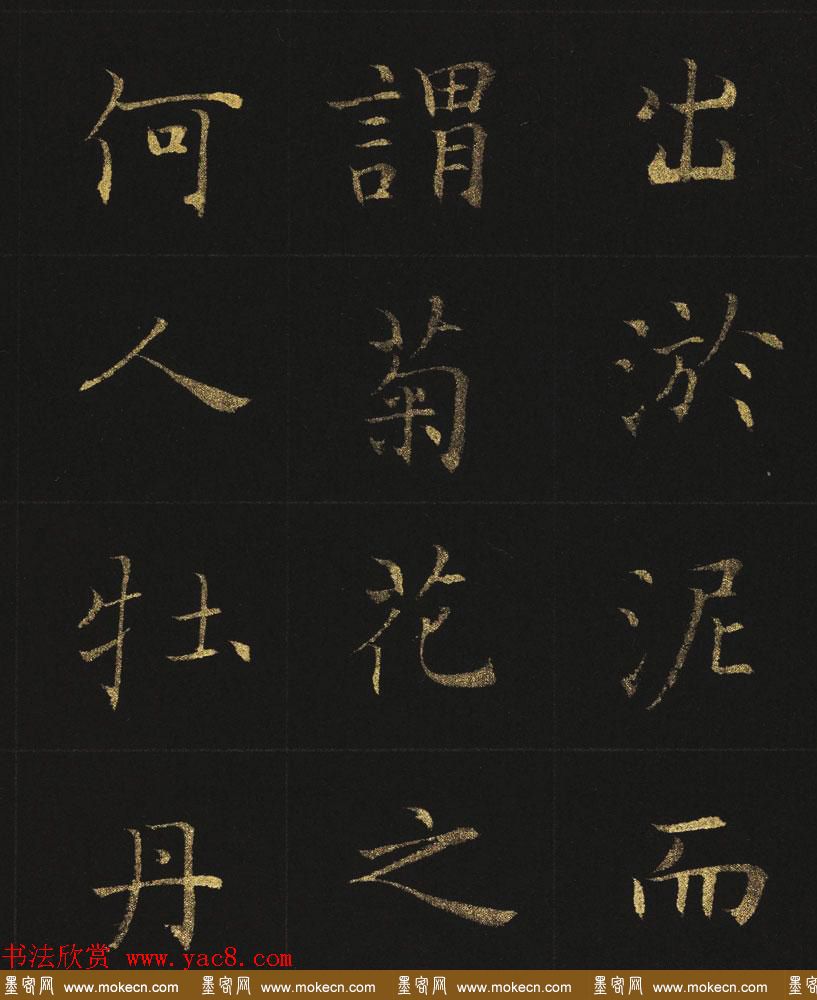 出淤泥而
謂菊花之
何人牡丹
书法欣赏 www.yac8.com
墨客网 www.mokecn.com 墨客网 www.mokecn.com 墨客网 www.mokecn.com 墨客网 www.mokecn.com